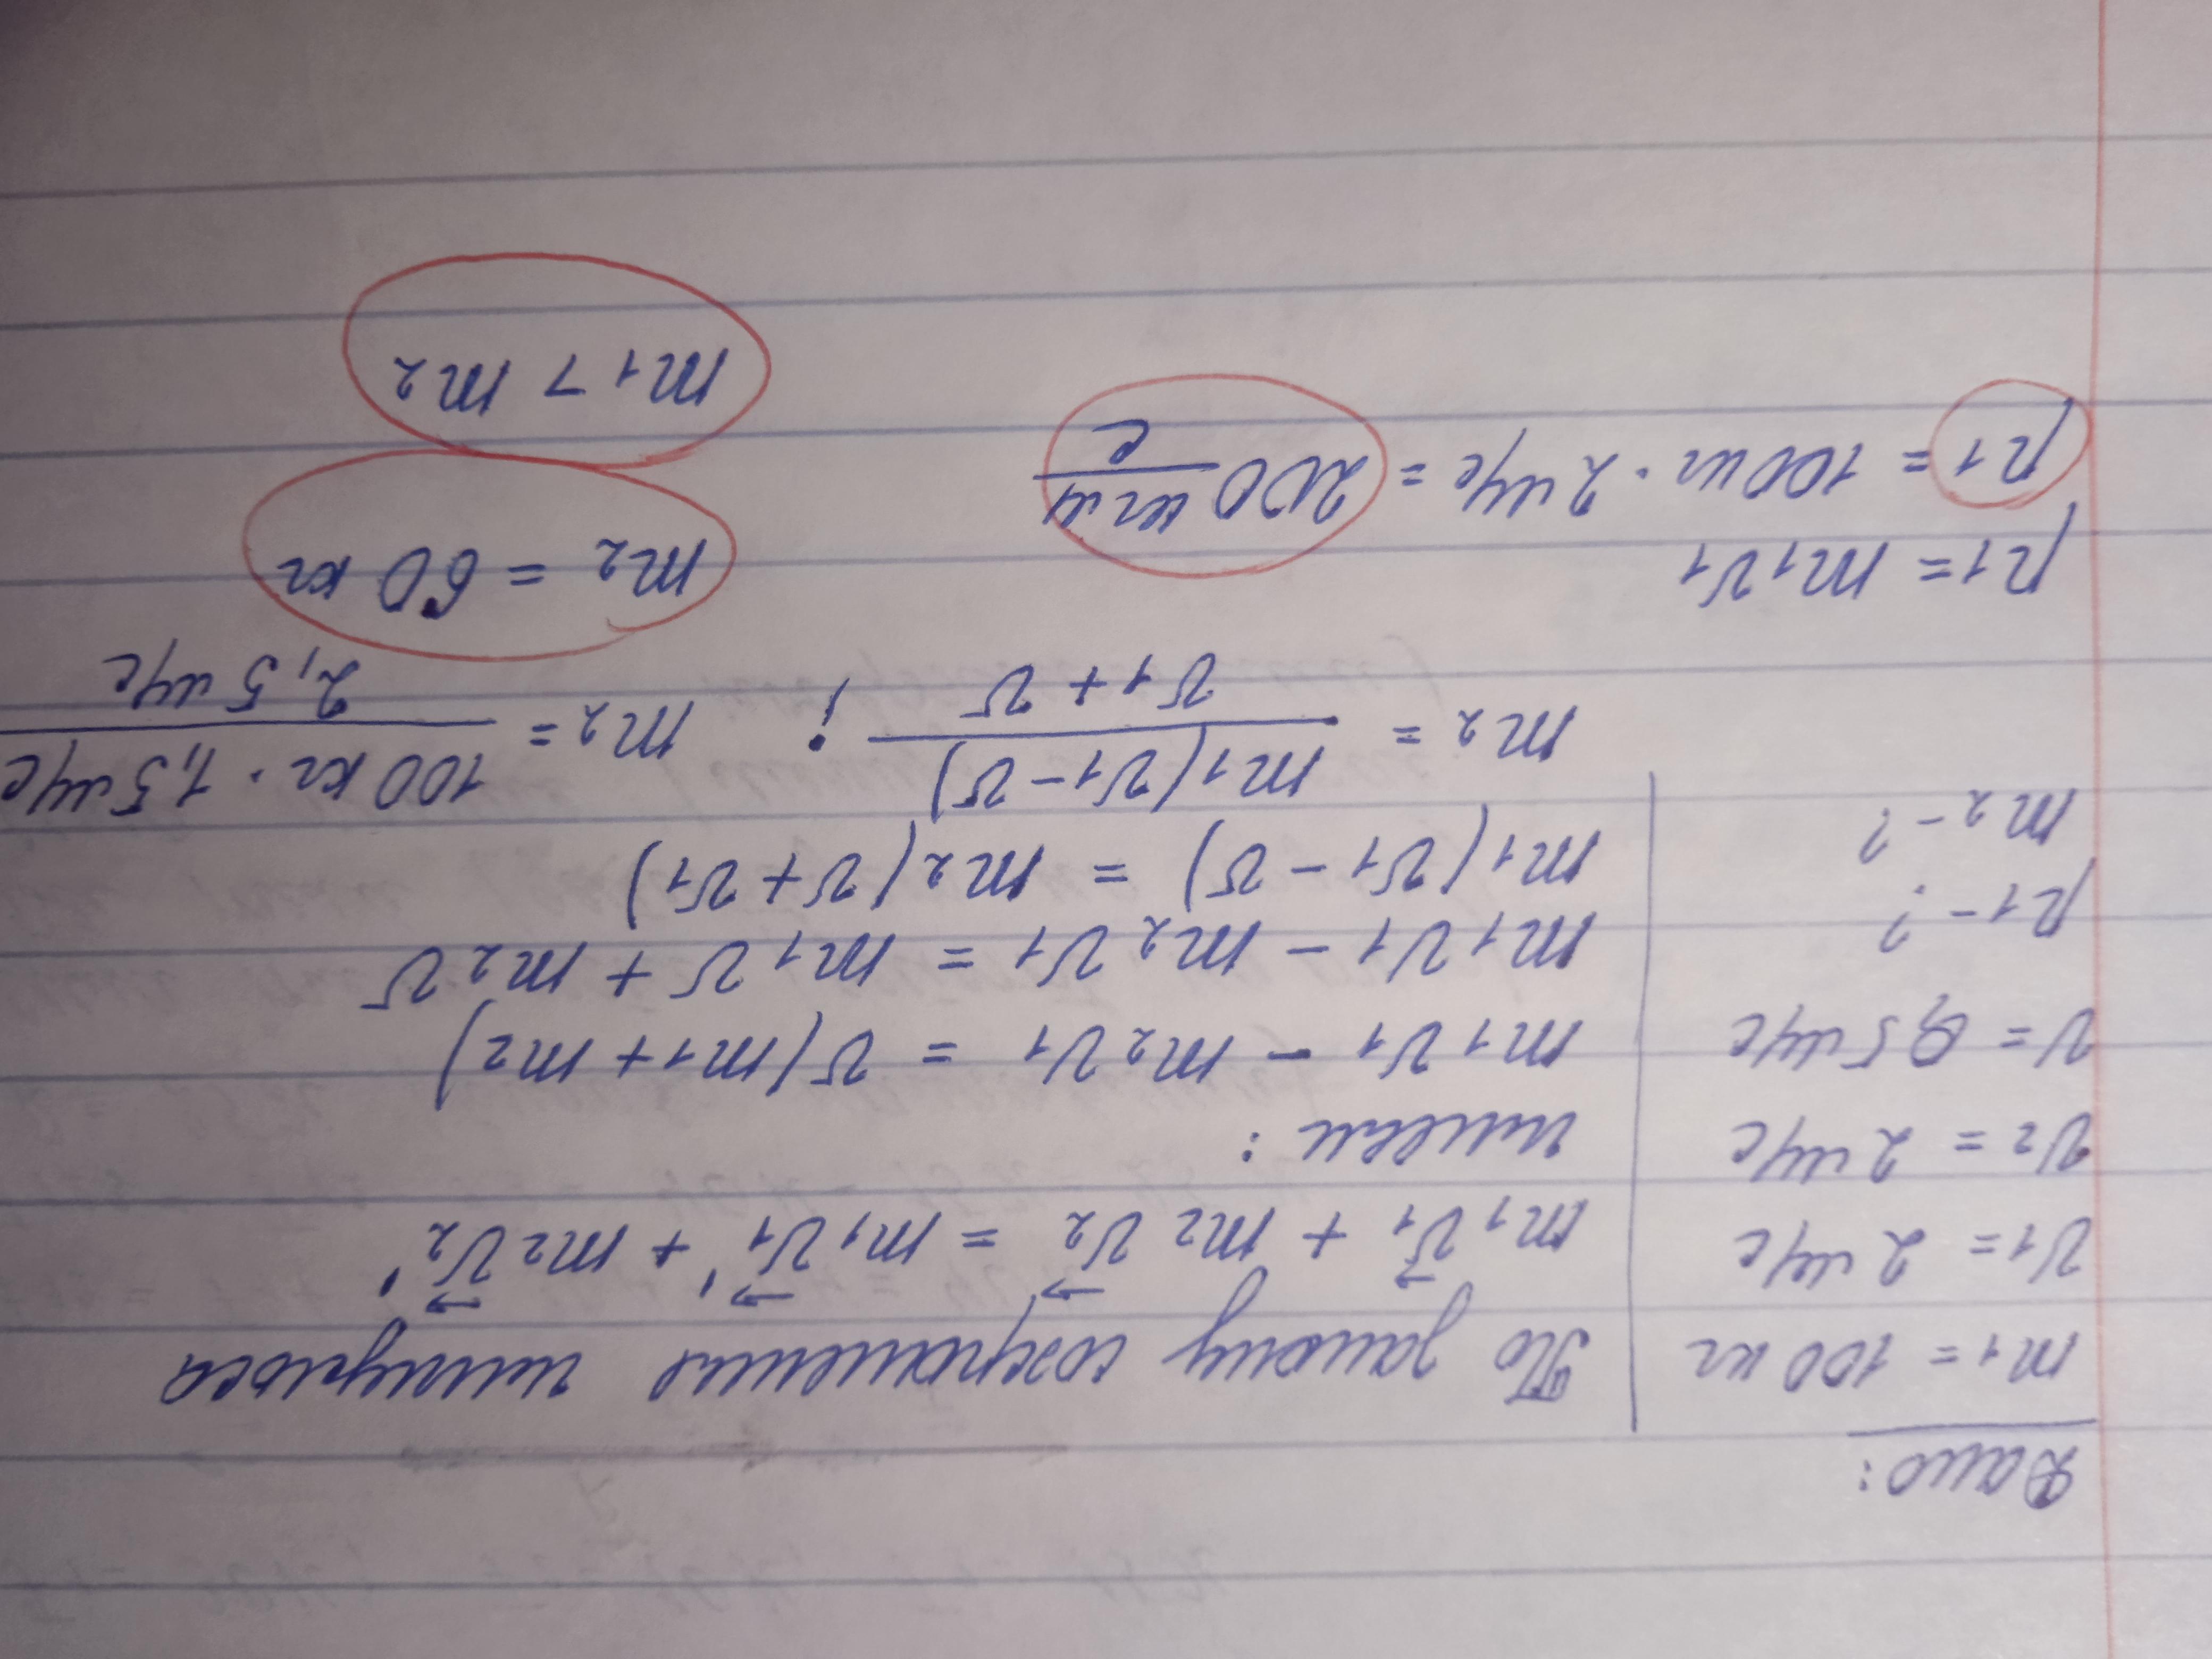 Дано:
m1 = 100 кг
v1 = 2 м/с
v2 = 2 м/с
v = 0,5 м/с
p1 - ?
m2 - ?
По закону сохранения импульса
m1v⃗1 + m2v⃗2 = m1v⃗1' + m2v⃗2'
имеем:
m1v1 - m2v1 = v(m1 + m2)
m1v1 - m2v1 = m1v + m2v
m1(v1 - v) = m2(v + v1)
m2 = m1(v1 - v) / v1 + v ; m2 = 100 кг · 1,5 м/с / 2,5 м/с
p1 = m1v1
m2 = 60 кг
p1 = 100 кг · 2 м/с = 200 кг м / с
m1 > m2